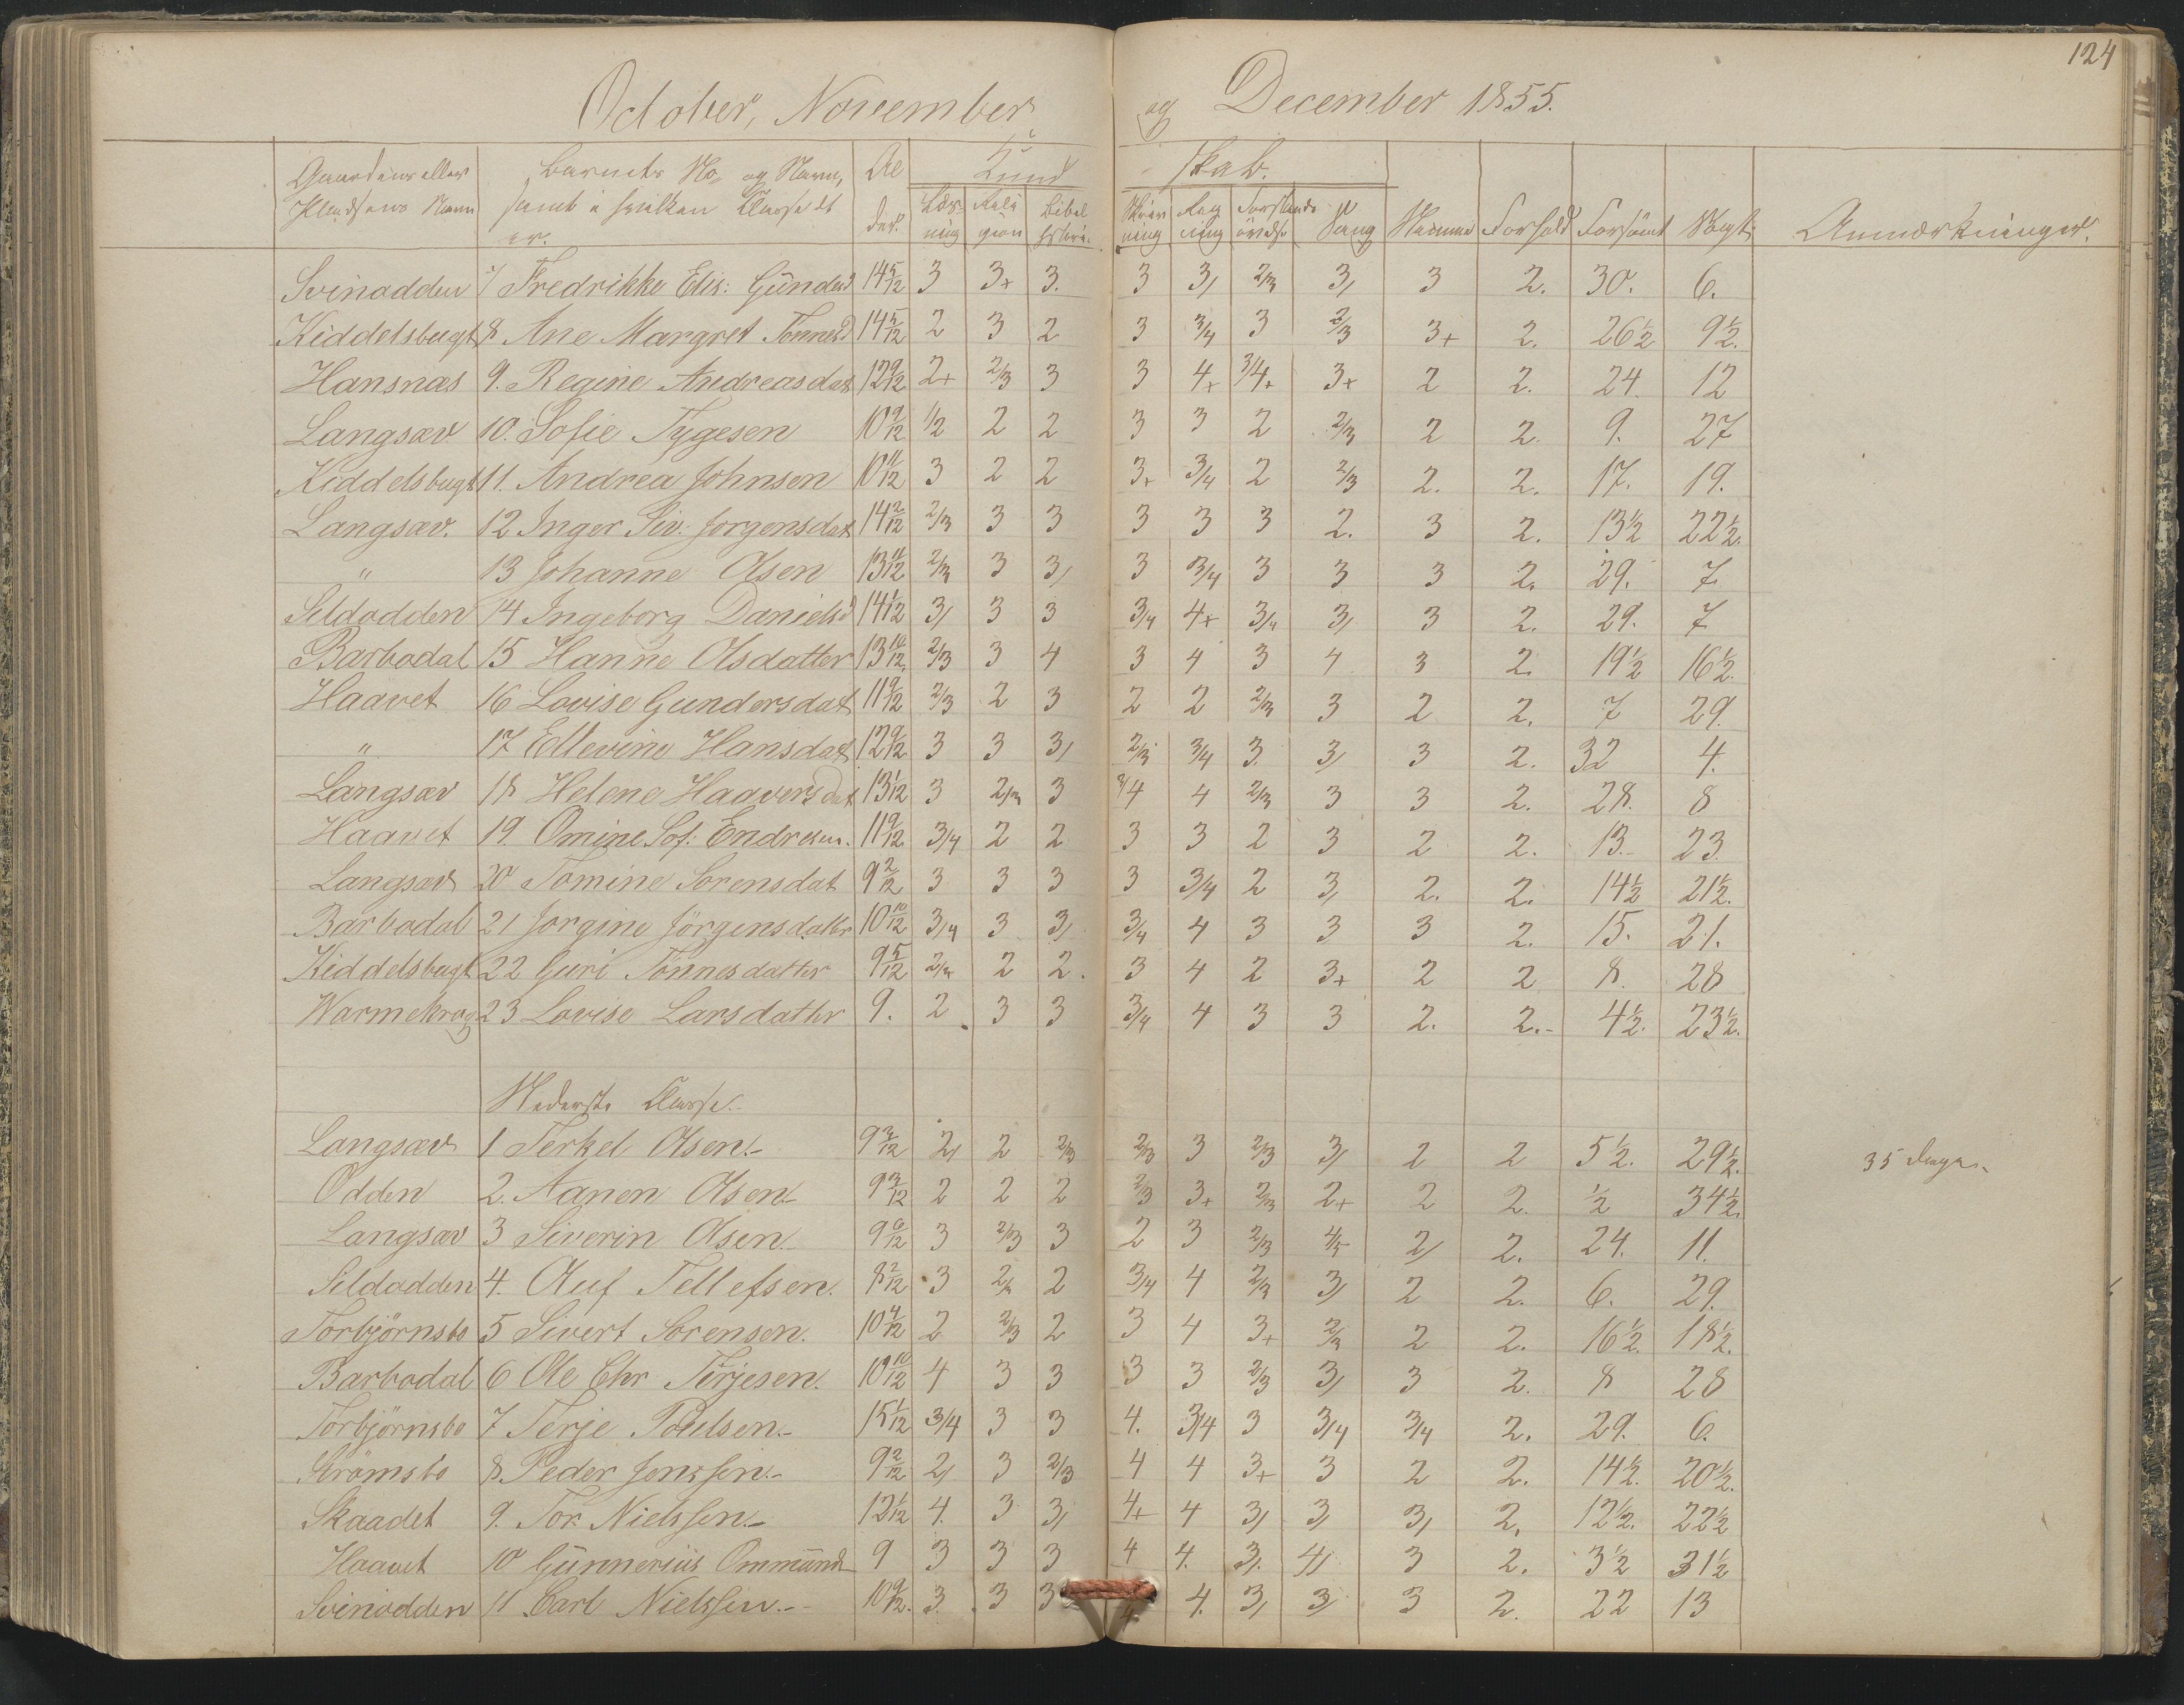 124
October, November og December 1855.
Gaardens eller Pladsens Navn | Barnets No og Navn, samt i hvilken Classe det er. | Al der. | Kund skab. | Nemme | Forhold | Forsömt | Sögt | Anmærkninger.
Læs- ning | Reli gion | Bibel historie | Skriv ning | Reg ning | Forstands övelse | Sang
Svinodden 7 Fredrikke Elis: Gunders 14 5/12 3 3+ 3. 3 3/ 2/3 3/ 3 2. 30. 6.
Kiddelsbugt 8 Ane Margret Tönnesd 14 5/12 2 3 2 3 3/4 3 2/3 3+ 2. 26½ 9½.
Hansnas 9. Regine Andreasdat 12 9/12 2+ 2/3 3 3 4+ 3/4+ 3+ 2 2. 24. 12
Langsæv 10. Sofie Tygesen 10 9/12 1/2 2 2 3 3 2 2/3 2 2. 9. 27
Kiddelsbugt 11. Andrea Johnsen 10 11/12 3 2 2 3+ 3/4 2 2/3 2. 2. 17. 19.
Langsæv. 12 Inger Siv: Jorgensdat 14 2/12 2/3 3 3 3 3 3 2. 3 2. 13½ 22½.
" 13 Johanne Olsen 13 11/12 2/3 3 3/ 3 3/4 3 3 3 2. 29. 7
Sildodden 14 Ingeborg Danielsd 14 1/12 3/ 3 3 3/4 4+ 3/4 3/ 3 2. 29. 7
Barbodal 15 Hanne Olsdatter 13 10/12. 2/3 3 4 3 4 3 4 3 2. 19½ 16½.
Haavet 16 Lovise Gundersdat 11 9/12 2/3 2 3 2 2 2/3 3 2 2. 7 29.
" 17 Ellevine Hansdat 12 9/12 3 3 3/ 2/3 3/4 3. 3/ 3 2. 32 4.
Langsæv 18 Helene Haaversdat 13 1/12 3 2/3 3 3/4 4 2/3 3 3 2. 28. 8
Haavet 19. Omine Sof: Endresen. 11 9/12 3/4 2 2 3 3 2 3 2 2. 13. 23.
Langsæv 20 Tomine Sorensdat 9 2/12 3 3 3 3 3/4 2 3/ 2. 2. 14½ 21½.
Barbodal 21 Jorgine Jörgensdatter 10 10/12 3/4 3 3/ 3/4 4 3 3 3 2. 15. 21.
Kiddelsbugt 22 Guri Tönnesdatter 9 5/12 2/3 2 2. 3 4 2 3+ 2 2 8. 28
Warmekrog 23 Lovise Larsdatter 9. 2 3 3 3/4 4 3 3 2. 2.- 4½. 23½.
Nederste Classe.
Langsæv 1 Terkel Olsen.- 9 3/12 2/ 2 2/3 2/3 3 2/3 3/ 2 2 5½. 29½. 35 Dage.
Odden 2. Aanen Olsen.- 9 3/12 2 2 2 2/3 3+ 2/3 2+ 2 2. ½ 34½.
Langsæv 3 Siverin Olsen. 9 6/12 3 2/3 3 2 3 2/3 4/5 2/ 2. 24. 11.
Sildodden 4. Oluf Tellefsen. 8 2/12 3 2/3 2 3/4 4 2/3 3/ 2 2. 6. 29.
Torbjörnsbo 5 Sivert Sorensen. 10 4/12 2 2/3 2 3 4 3+ 2/3 2 2. 16½. 18½.
Barbodal 6 Ole Chr Terjesen. 10 10/12 4 3 3 3 3 2/3 3/ 3 2. 8 28
Torbjörnsbo 7 Terje Poulsen.- 15 1/12 3/4 3 3 4. 3/4 3 3/4 3/4 2. 29. 6.
Strömsbo 8. Peder Jenssen.- 9 2/12 2/ 3 2/3 4 4 3+ 3 2 2. 14½. 20½.
Skaadet 9. Tor Nielssen.- 12 1/12 4. 3 3/ 4+ 4 3/ 3/ 3/ 2. 12½. 22½
Haavet 10 Gunnerius Ommunds 9 3 3 3 4 4. 3. 4/ 3 2. 3½ 31½
Svinodden 11 Carl Nielssen.- 10 9/12. 3. 3 3 4. 4. 3/ 3/ 3 2. 22 13